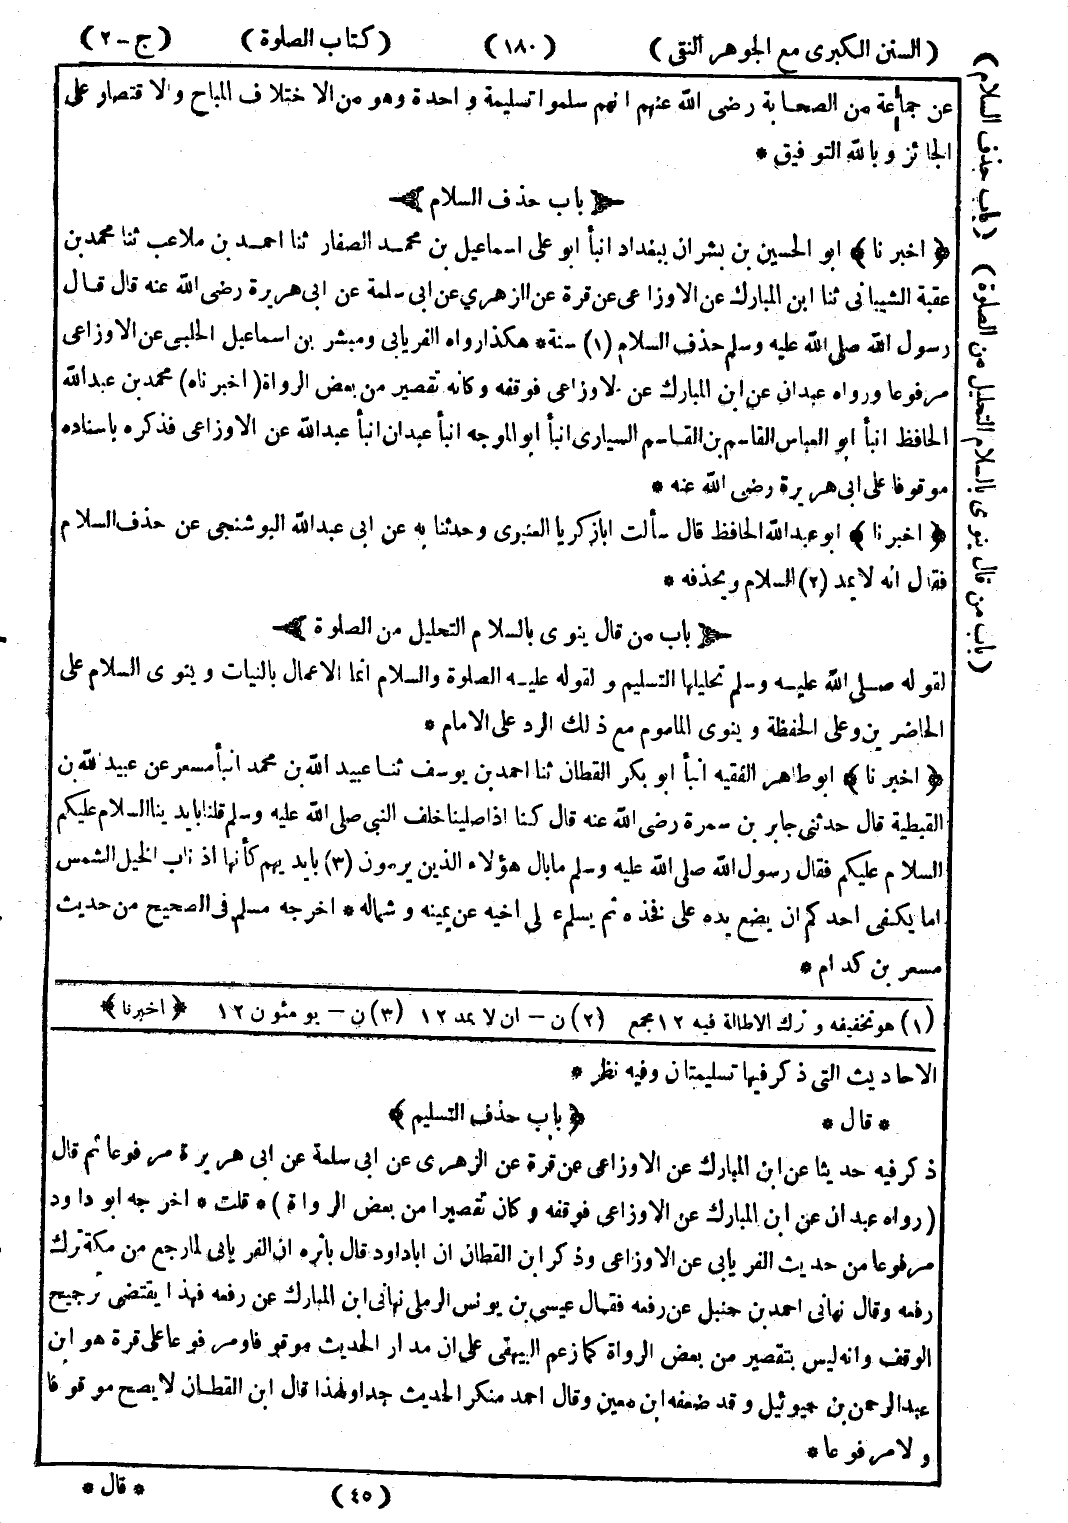 (السنن الكبرى مع الجوهر النقى) (١٨٠) (كتاب الصلوة) (ج-٢)
عن جماعة من الصحابة رضى الله عنهم انهم سلموا تسليمة واحدة وهو من الاختلاف المباح والاقتصار على
الجائز وبالله التوفيق *
﴿ باب حذف السلام ﴾
﴿ اخبرنا ﴾ ابو الحسين بن بشران ببغداد انبأ ابو على اسماعيل بن محمد الصفار ثنا احمد بن ملاعب ثنا محمد بن
عقبة الشيبانى ثنا ابن المبارك عن الاوزاعى عن قرة عن الزهري عن ابى سلمة عن ابى هريرة رضى الله عنه قال قال
رسول الله صلى الله عليه وسلم حذف السلام (١) سنة * هكذا رواه الفريابى ومبشر بن اسماعيل الحلبى عن الاوزاعى
مرفوعا ورواه عبدان عن ابن المبارك عن الاوزاعى فوقفه وكانه تقصير من بعض الرواة (اخبرناه) محمد بن عبدالله
الحافظ انبأ ابو العباس القاسم بن القاسم السيارى انبأ ابو الموجه انبأ عبدان انبأ عبدالله عن الاوزاعى فذكره باسناده
موقوفا على ابى هريرة رضى الله عنه *
﴿ اخبرنا ﴾ ابو عبدالله الحافظ قال سألت ابازكريا العنبرى وحدثنا به عن ابى عبدالله البوشنجى عن حذف السلام
فقال انه لا يمد (٢) السلام ويحذفه *
﴿ باب من قال ينوى بالسلام التحليل من الصلوة ﴾
لقوله صلى الله عليه وسلم تحليلها التسليم ولقوله عليه الصلوة والسلام انما الاعمال بالنيات وينوى السلام على
الحاضرين وعلى الحفظة وينوى الماموم مع ذلك الرد على الامام *
﴿ اخبرنا ﴾ ابو طاهر الفقيه انبأ ابو بكر القطان ثنا احمد بن يوسف ثنا عبيد الله بن محمد انبأ مسعر عن عبيد الله بن
القبطية قال حدثنى جابر بن سمرة رضى الله عنه قال كنا اذا صلينا خلف النبى صلى الله عليه وسلم قلنا بايدينا السلام عليكم
السلام عليكم فقال رسول الله صلى الله عليه وسلم مابال هؤلاء الذين يرمون (٣) بايديهم كأنها اذناب الخيل الشمس
اما يكفى احدكم ان يضع يده على فخذه ثم يسلم على اخيه عن يمينه وشماله * اخرجه مسلم فى الصحيح من حديث
مسعر بن كدام *
(١) هو تخفيفه وترك الاطالة فيه ١٢ مجمع (٢) ن - ان لا يمد ١٢ (٣) ن - يومئون ١٢ ﴿ اخبرنا ﴾
الاحاديث التى ذكر فيها تسليمتان وفيه نظر *
* قال * ﴿ باب حذف التسليم ﴾
ذكر فيه حديثا عن ابن المبارك عن الاوزاعى عن قرة عن الزهرى عن ابى سلمة عن ابى هريرة مرفوعا ثم قال
(رواه عبدان عن ابن المبارك عن الاوزاعى فوقفه وكان تقصيرا من بعض الرواة) * قلت * اخرجه ابو داود
مرفوعا من حديث الفريابى عن الاوزاعى وذكر ابن القطان ان اباداود قال باثره ان الفريابى لما رجع من مكة ترك
رفعه وقال نهانى احمد بن حنبل عن رفعه فقال عيسى بن يونس الرملى نهانى ابن المبارك عن رفعه فهذا يقتضى ترجيح
الوقف وانه ليس بتقصير من بعض الرواة كما زعم البيهقى على ان مدار الحديث موقوفا ومرفوعا على قرة هو ابن
عبدالرحمن بن حيوئيل وقد ضعفه ابن معين وقال احمد منكر الحديث جدا ولهذا قال ابن القطان لا يصح موقوفا
ولا مرفوعا *
(٤٥) * قال *
(باب حذف السلام) (باب من قال ينوى بالسلام التحليل من الصلوة)